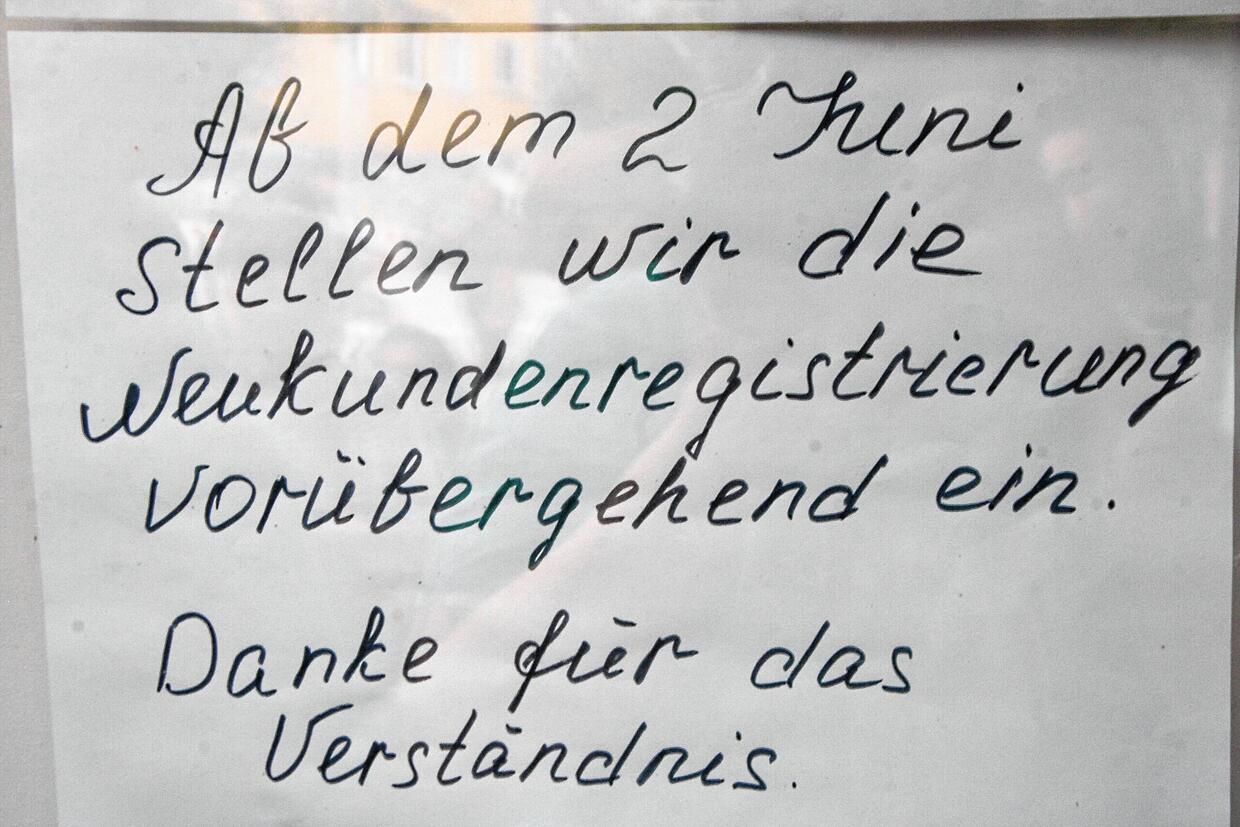 Ab dem 2 Juni
stellen wir die
Neukundenregistrierung
vorübergehend ein.
Danke für das
Verständnis.